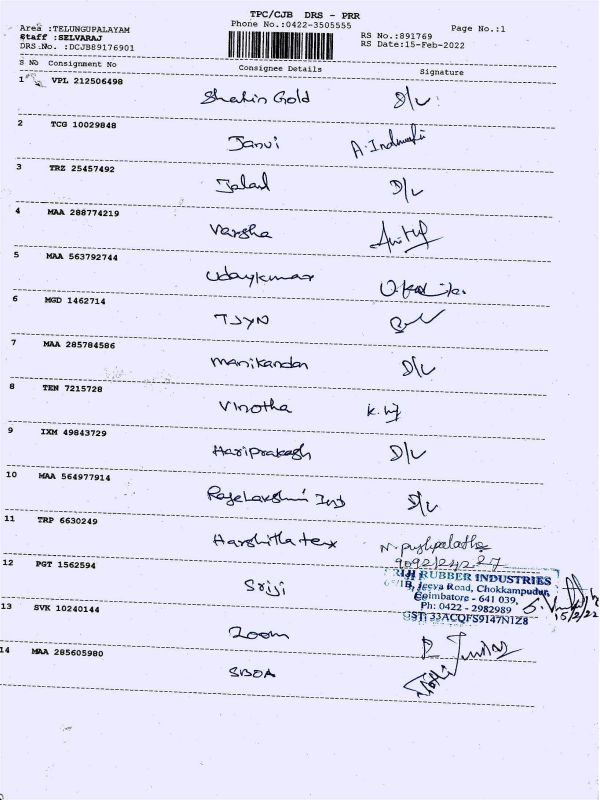 TPC/CJB DRS - PRR
Area :TELUNGUPALAYAM Phone No.:0422-3505555 Page No.:1
Staff :SELVARAJ RS No.:891769
DRS No. :DCJB89176901 RS Date:15-Feb-2022
S No Consignment No Consignee Details Signature
1 VPL 212506498
Shahin Gold D/L
2 TCG 10029848
Janvi
3 TRZ 25457492
Jalal D/L
4 MAA 288774219
Varsha
5 MAA 563792744
Udaykumar
6 MGD 1462714
TJYN
7 MAA 285784586
Manikandan D/L
8 TEN 7215728
Vinotha
9 IXM 49843729
Hariprakash D/L
10 MAA 564977914
Rajelakshmi Ind D/L
11 TRP 6630249
Harshitha tex N. Pushpalatha
12 PGT 1562594
RUBBER INDUSTRIES
Jeeva Road, Chokkampudur,
Sriji Coimbatore - 641 039,
Ph: 0422 - 2982989 15/2/22
13 SVK 10240144 GST: 33ACQFS9147N1Z8
Zoom
14 MAA 285605980
SBOA